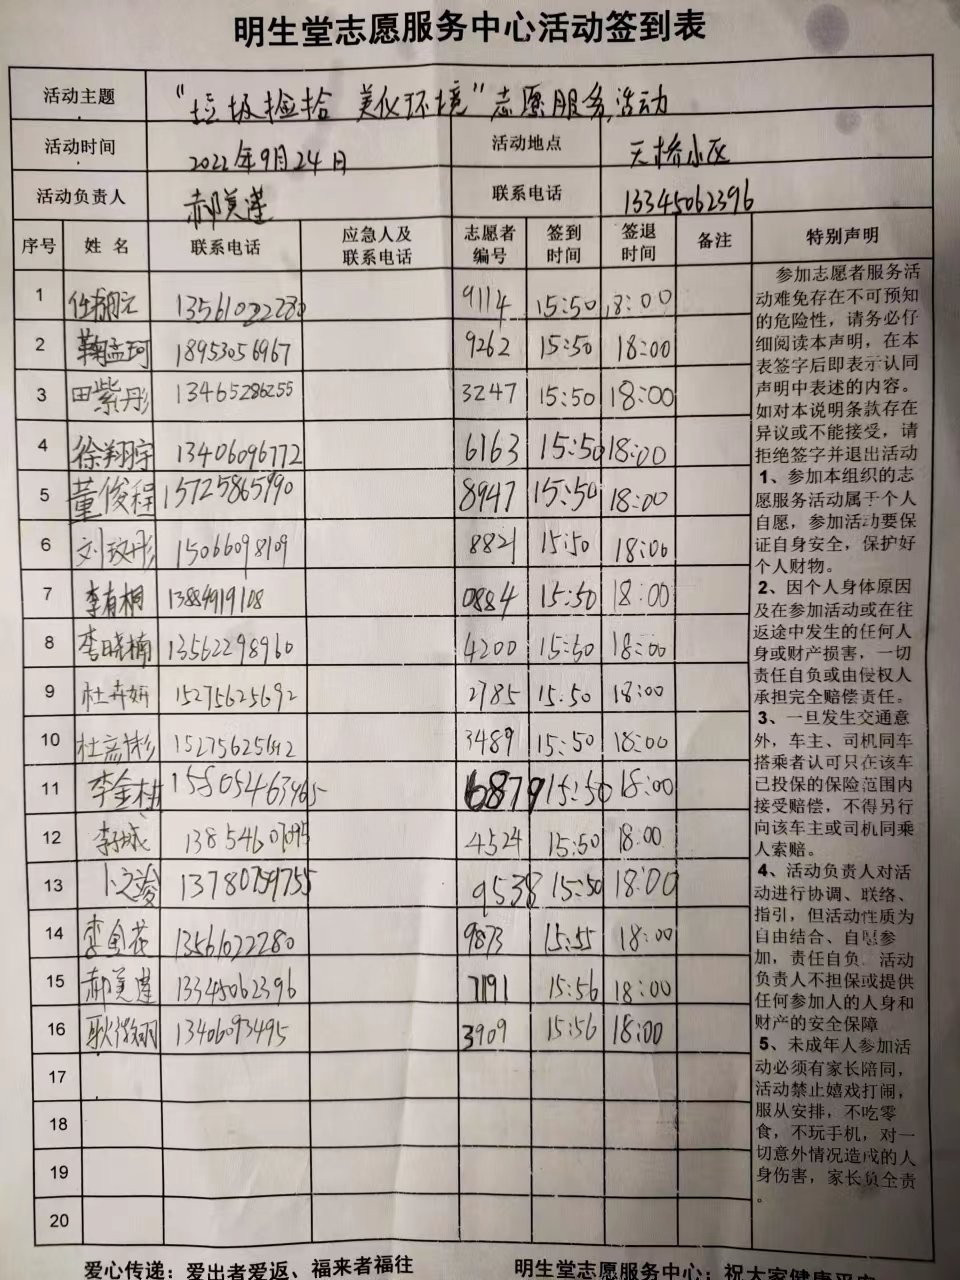 明生堂志愿服务中心活动签到表
活动主题 “垃圾捡拾 美化环境”志愿服务活动
活动时间 2022年9月24日 活动地点 天桥小区
活动负责人 郝美莲 联系电话 13345062396
序号 姓名 联系电话 应急人及联系电话 志愿者编号 签到时间 签退时间 备注 特别声明
1 13561022280 9114 15:50 18:00
2 鞠孟珂 18953056967 9262 15:50 18:00
3 田紫彤 13465286255 3247 15:50 18:00
4 徐翔宇 13406096772 6163 15:50 18:00
5 董俊程 15725865990 8947 15:50 18:00
6 刘玟彤 15066098109 8821 15:50 18:00
7 李有桐 13884919108 0884 15:50 18:00
8 李晓楠 13562298960 4200 15:50 18:00
9 杜卉妍 15275625692 2785 15:50 18:00
10 3489 15:50 18:00
11 李金 15805463965 6879 15:50 18:00
12 4524 15:50 18:00
13 13780759755 9538 15:50 18:00
14 李金花 13561022280 9873 15:55 18:00
15 郝美莲 13345062396 7191 15:56 18:00
16 13406093495 3909 15:56 18:00
17
18
19
20
参加志愿者服务活
动难免存在不可预知
的危险性，请务必仔
细阅读本声明，在本
表签字后即表示认同
声明中表述的内容。
如对本说明条款存在
异议或不能接受，请
拒绝签字并退出活动
1、参加本组织的志
愿服务活动属于个人
自愿，参加活动要保
证自身安全，保护好
个人财物。
2、因个人身体原因
及在参加活动或在往
返途中发生的任何人
身或财产损害，一切
责任自负或由侵权人
承担完全赔偿责任。
3、一旦发生交通意
外，车主、司机同车
搭乘者认可只在该车
已投保的保险范围内
接受赔偿，不得另行
向该车主或司机同乘
人索赔。
4、活动负责人对活
动进行协调、联络、
指引，但活动性质为
自由结合、自愿参
加，责任自负。活动
负责人不担保或提供
任何参加人的人身和
财产的安全保障
5、未成年人参加活
动必须有家长陪同，
活动禁止嬉戏打闹，
服从安排，不吃零
食，不玩手机，对一
切意外情况造成的人
身伤害，家长负全责
。
爱心传递：爱出者爱返、福来者福往 明生堂志愿服务中心：祝大家健康平安